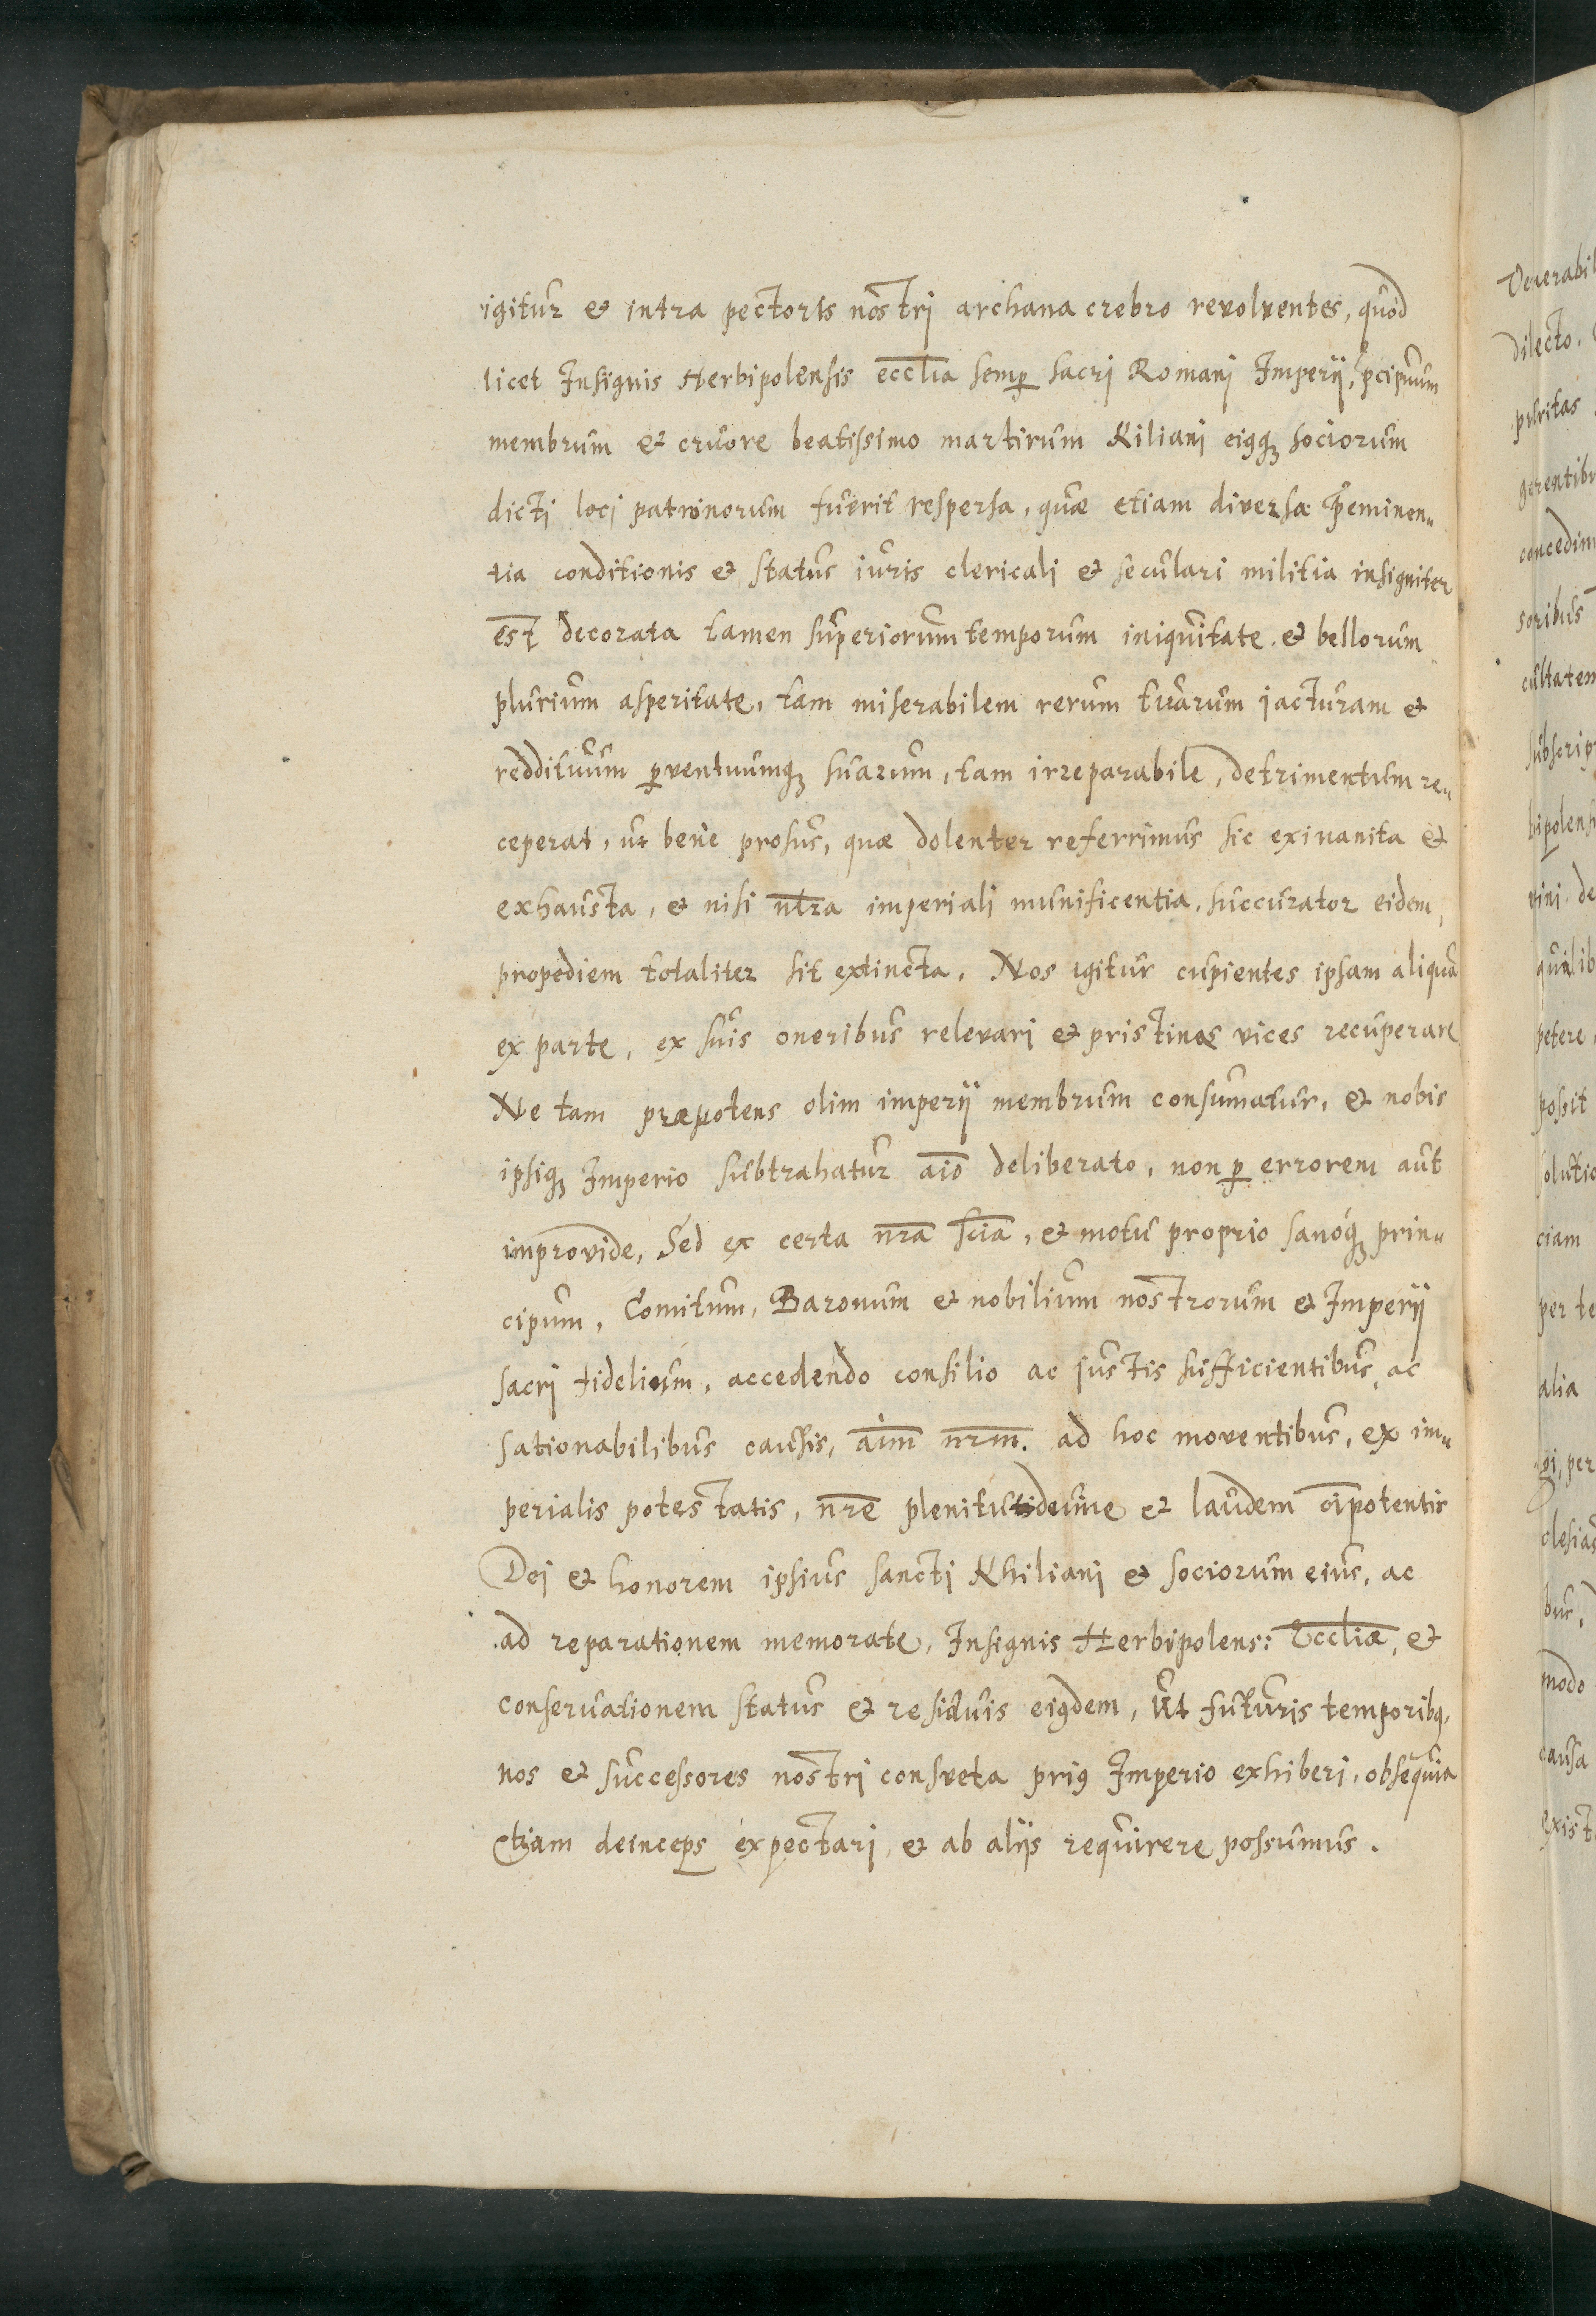 igitur et intra pectoris nostrj archana crebro revolventes, quod
licet Insignis Herbipolensis eccl̄ia semꝑ sacrj Romanj Imperij, p̄cipuum
membrum et cruore beatissimo martirum Kilianj eiꝰqꝫ sociorum
dictj locj patronorum fuerit respersa, quae etiam diversa p̄eminen„
tia conditionis et status iuris clericali et seculari militia insigniter
est decorata tamen superiorum temporum iniquitate et bellorum
plurium asperitate, tam miserabilem rerum tuarum jacturam et
reddituum ꝓventuumqꝫ suarum, tam irreparabile, detrimentum re„
ceperat, ut bene prosus, quae dolenter referrimus sic exinanita et
exhausta, et nisi nr̄a imperiali munificentia, succurator eidem,
propediem totaliter sit extincta. Nos igitur cupientes ipsam aliquā
ex parte, ex suis oneribus relevari et pristinas vices recuperare
Ne tam praepotens olim imperij membrum consumatur, et nobis
ipsiqꝫ Imperio subtrahatur aīo deliberato, non ꝑ errorem aut
improvide, Sed ex certa nr̄a scīa, et motu proprio sanoqꝫ prin„
cipum, Comitum, Baronum et nobilium nostrorum et Imperij
sacrj fidelium, accedendo consilio ac justis sufficientibus, ac
sationabilibus causis, aīm nr̄m. ad hoc moventibus, ex im„
perialis potestatis, nr̄e plenitutideume et laudem oīpotentis
Dej et honorem ipsius sancti Khilianj et sociorum eius, ac
ad reparationem memorate, Insignis Herbipolens: Eccl̄iae, et
conservationem status et residuis eiꝰdem, Ut futuris temporibꝰ,
nos et successores nostri consueta priꝰ Imperio exhiberi, obsequia
Etiam deinceps expectarj, et ab alijs requirere possumus.